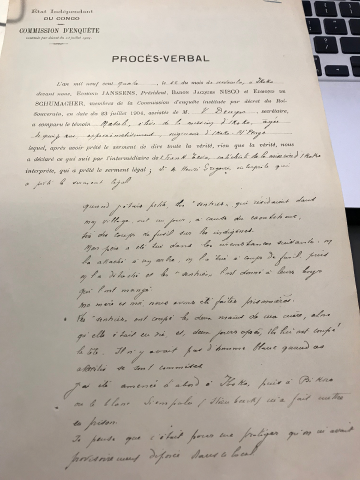 État Indépendant
DU CONGO
COMMISSION D'ENQUÊTE
instituée par décret du 23 juillet 1904
PROCÈS-VERBAL
L'an mil neuf cent quatre, le 12 du mois de
devant nous, Edmond JANSSENS, Président, Baron Jacques NISCO et Edmond DE
SCHUMACHER, membres de la Commission d'enquête instituée par décret du Roi-
Souverain, en date du 23 juillet 1904, assistés de M. V. Denyn, secrétaire,
a comparu le témoin de la mission d'Ikoko, âgée
de quinze ans, approximativement, originaire d'Ikoko
laquelle, après avoir prêté le serment de dire toute la vérité, rien que la vérité, nous
a déclaré ce qui suit par l'intermédiaire de de la mission d'Ikoko
interprète, qui a prêté le serment légal; interprète qui
a prêté le serment légal
Quand j'étais petite les sentries, qui résidaient dans
mon village ont un jour, à cause du caoutchouc,
tiré des coups de fusil sur les indigènes.
Mon père a été tué dans les circonstances suivantes: on
l'a attaché à un arbre, on l'a tué à coups de fusil, puis
on l'a détaché et les sentries l'ont donné à leurs boys
qui l'ont mangé.
Ma mère et moi, nous avons été faites prisonnières.
Les sentries ont coupé les deux mains de ma mère, alors
qu'elle était en vie et, deux jours après, ils lui ont coupé
la tête. Il n'y avait pas d'homme blanc quand ces
se sont commises
J'ai été amenée d'abord à Ikoko, puis à Bikoro
où le blanc m'a fait mettre
en prison
Je pense que c'était pour me protéger qu'on m'avait
provisoirement déposée dans ce local